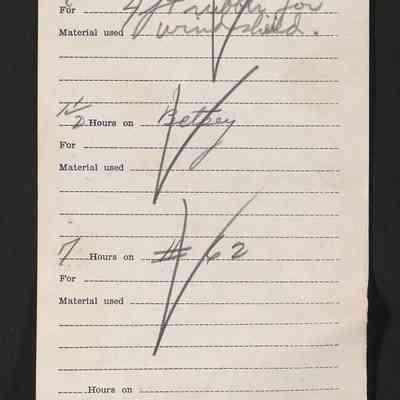 For 4 ft rubber for
Material used windshield.
7 1/2 Hours on Betsey
For
Material used
7 Hours on # 62
For
Material used
Hours on